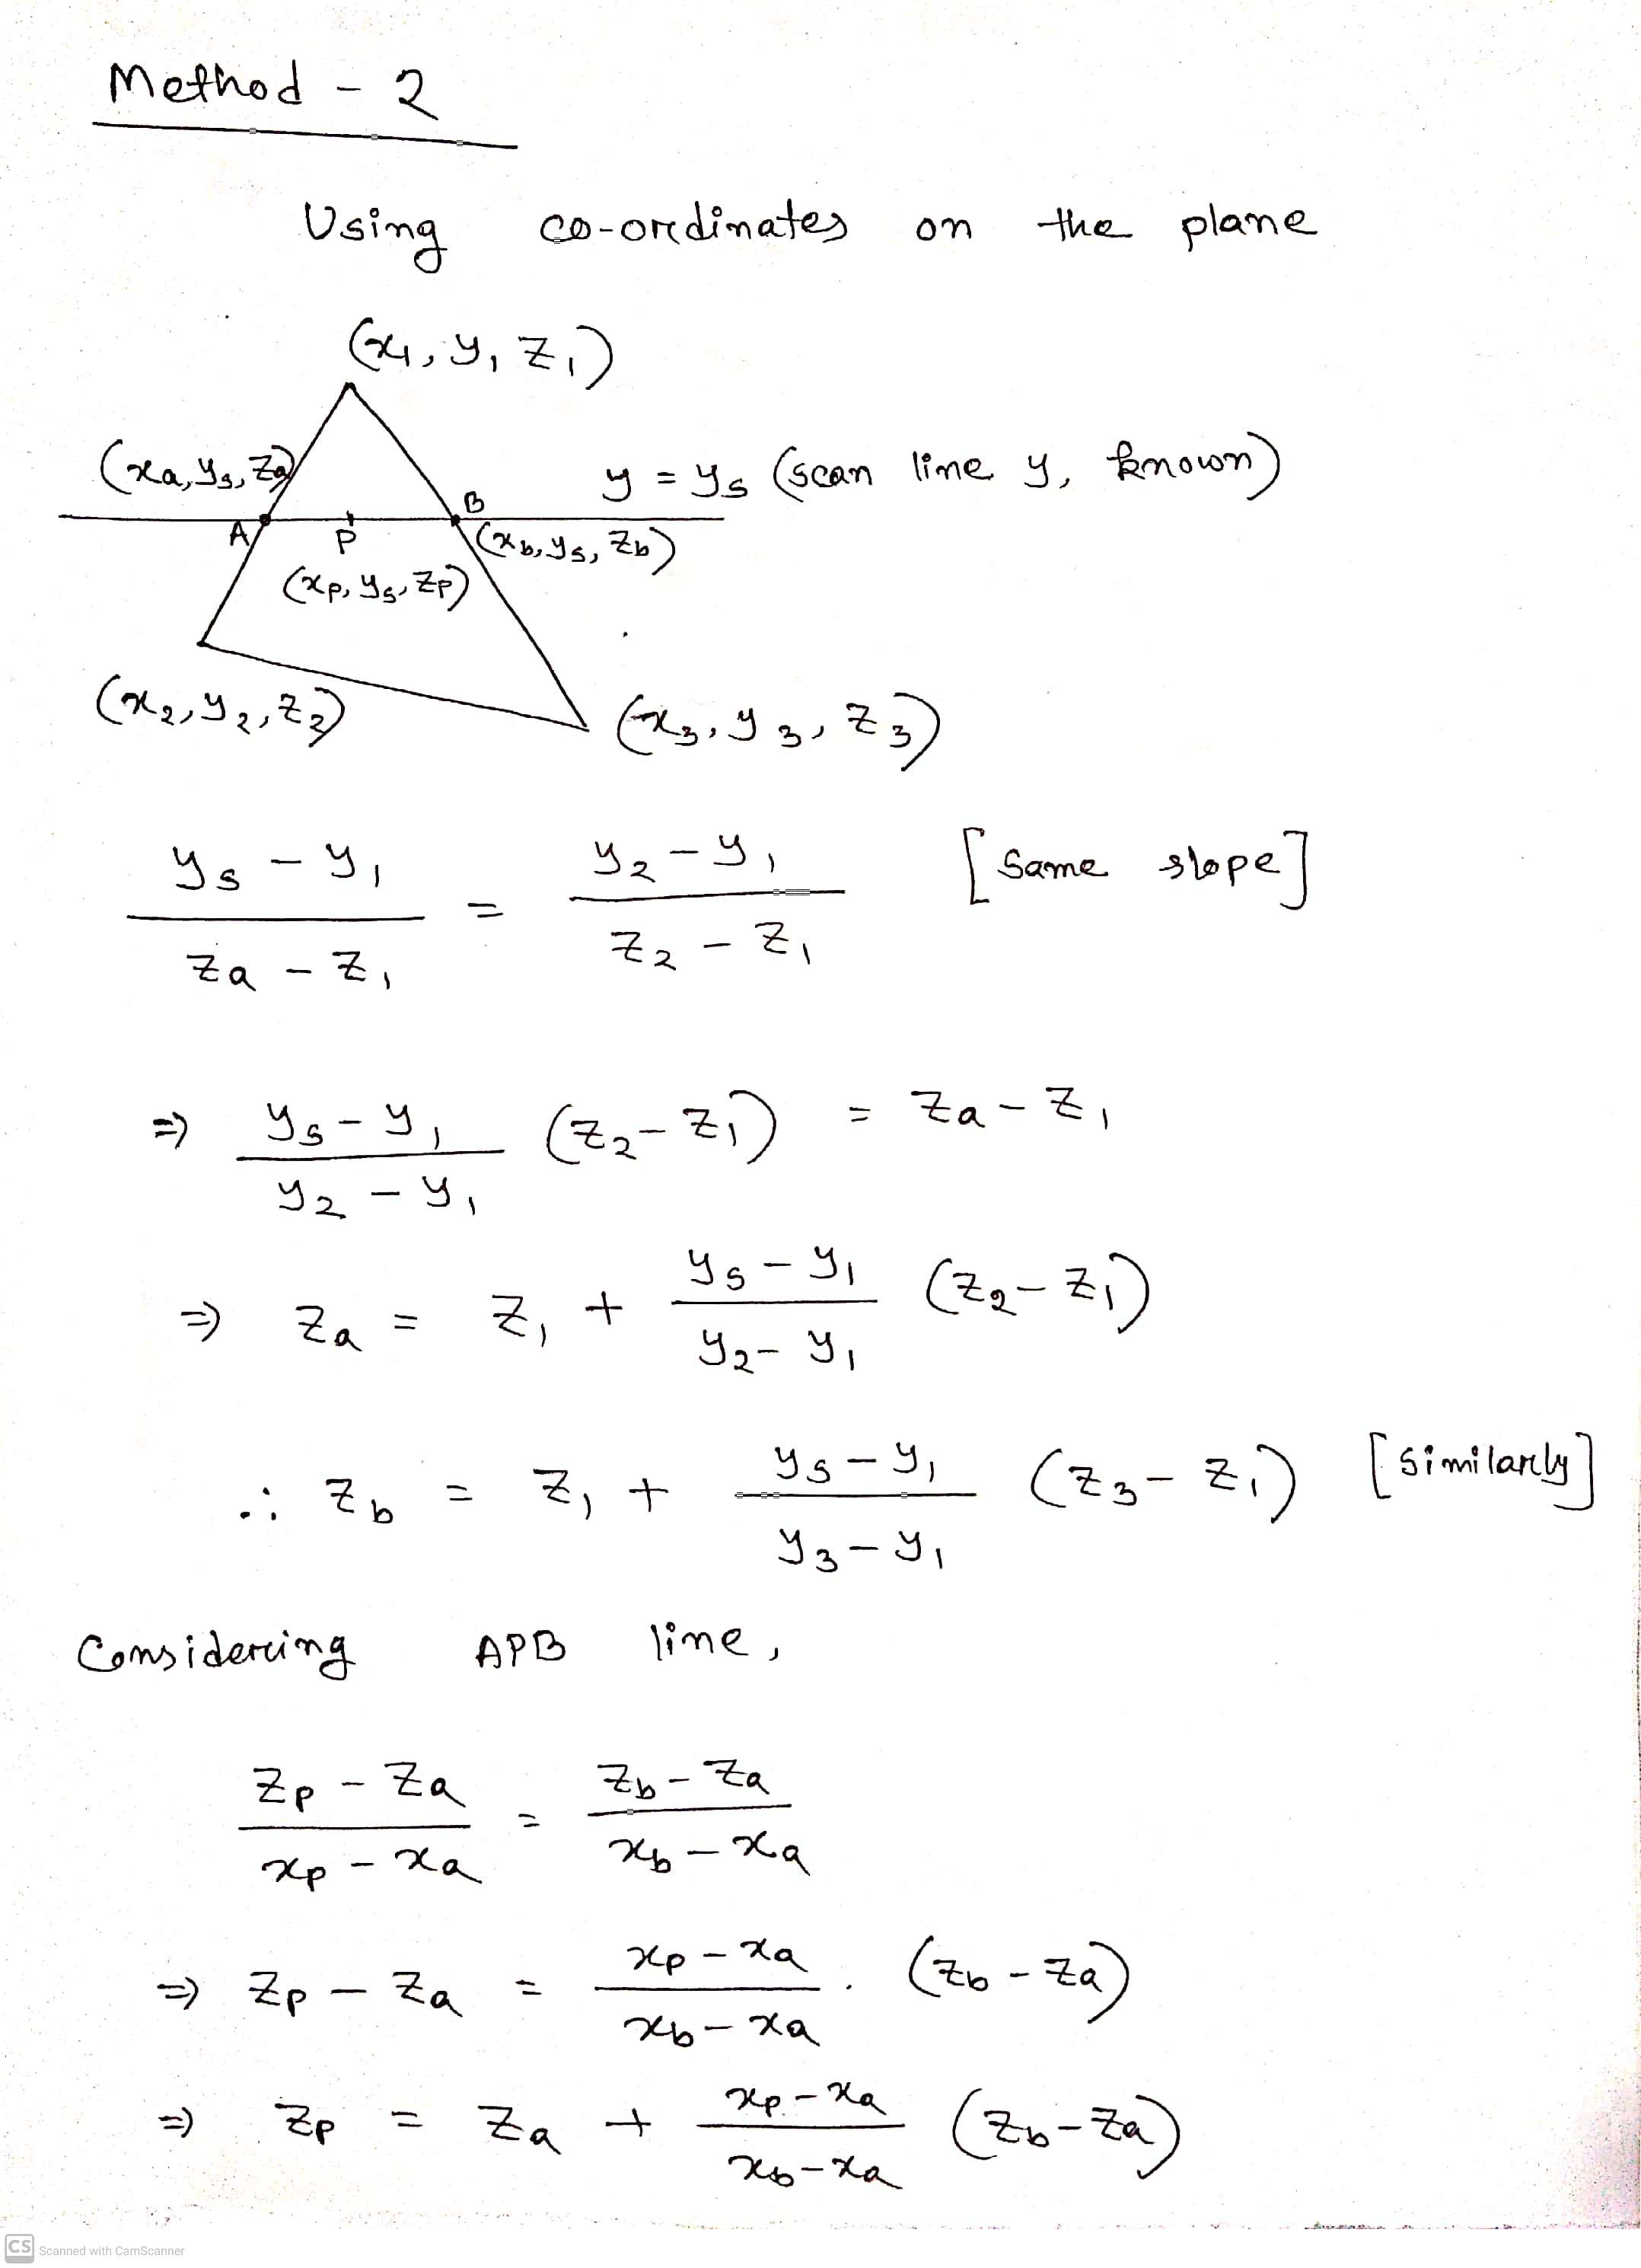 Method - 2
Using co-ordinates on the plane
(x₁, y₁ z₁)
(xa, ys, za)
y = ys (scan line y, known)
A P B
(xb, ys, zb)
(xp, ys, zp)
(x₂, y₂, z₂)
(x₃, y₃, z₃)
(ys - y₁)/(za - z₁) = (y₂ - y₁)/(z₂ - z₁) [same slope]
⇒ (ys - y₁)/(y₂ - y₁) (z₂ - z₁) = za - z₁
⇒ za = z₁ + (ys - y₁)/(y₂ - y₁) (z₂ - z₁)
∴ zb = z₁ + (ys - y₁)/(y₃ - y₁) (z₃ - z₁) [similarly]
Considering APB line,
(zp - za)/(xp - xa) = (zb - za)/(xb - xa)
⇒ zp - za = (xp - xa)/(xb - xa) . (zb - za)
⇒ zp = za + (xp - xa)/(xb - xa) (zb - za)
CS Scanned with CamScanner